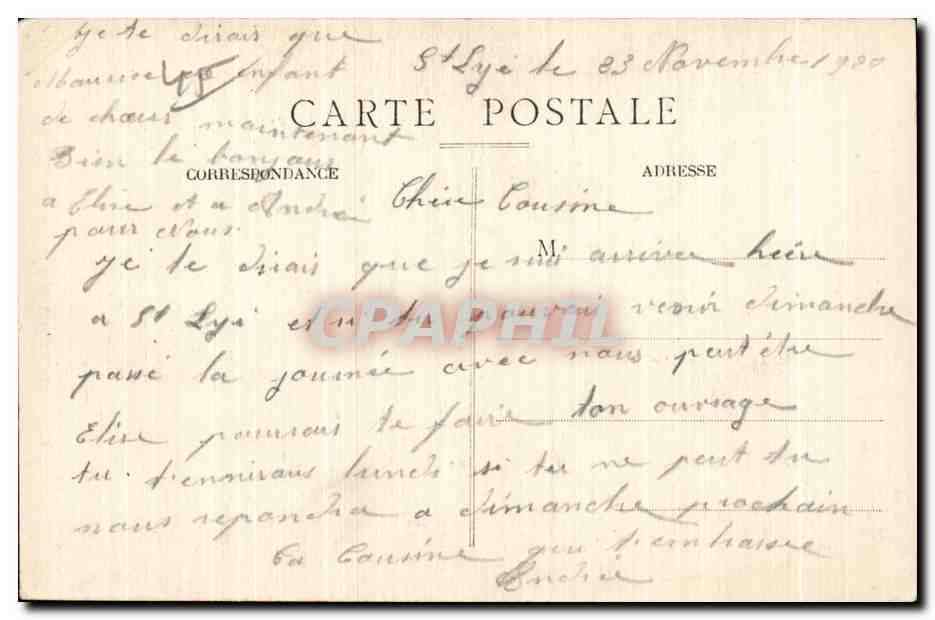 St Lyé le 23 Novembre 1920
CARTE POSTALE
CORRESPONDANCE
ADRESSE
M
Chère Cousine
Je te dirais que je sui arrivée hière
a St Lyé et si tu pouvais venir dimanche
passé la journée avec nous peut être
Elise pourrais te faire ton ouvrage
tu t'ennirais lundi si tu ne peut tu
nous repondra a dimanche prochain
ta Cousine qui t'embrasse
Andrée
Je te dirais que
Maurice enfant
de chœur maintenant
Bien le bonjour
a Elise et a André
pour Nous.
45
CPAPHIL